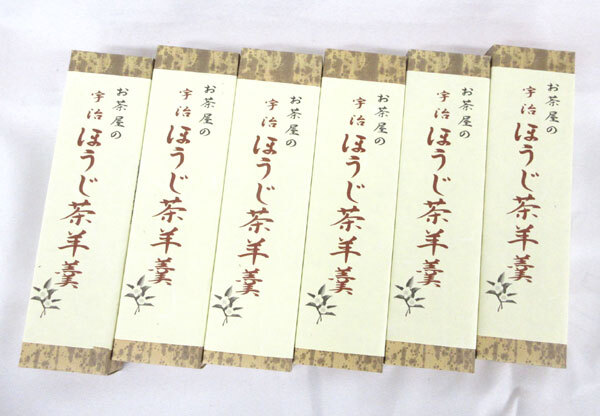 お茶屋の
宇治ほうじ茶羊羹
お茶屋の
宇治ほうじ茶羊羹
お茶屋の
宇治ほうじ茶羊羹
お茶屋の
宇治ほうじ茶羊羹
お茶屋の
宇治ほうじ茶羊羹
お茶屋の
宇治ほうじ茶羊羹